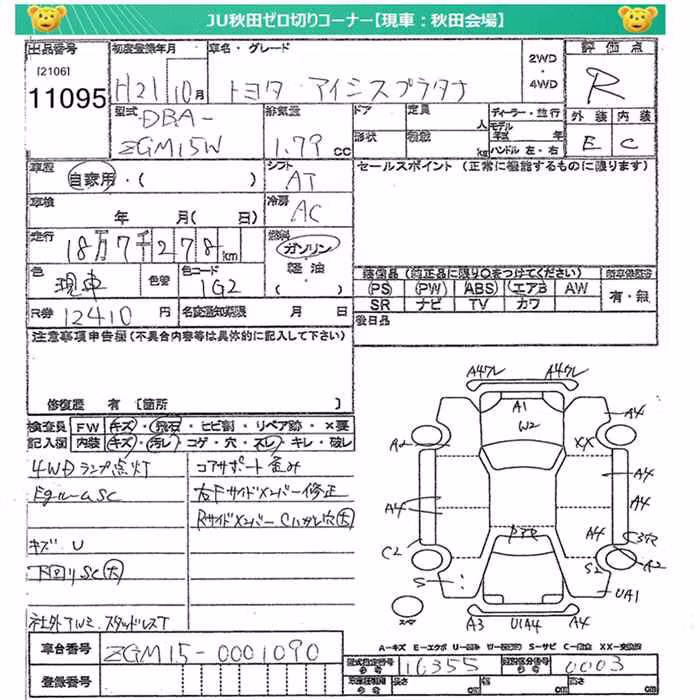 JU秋田ゼロ切りコーナー【現車：秋田会場】
出品番号 初度登録年月 車名・グレード 2WD・4WD 評価点
[2106]
11095 H21 10月 トヨタ・アイシスプラタナ R
型式 排気量 ドア 定員 人 ディーラー・並行 外装 内装
DBA-
ZGM15W 1.79 cc 形状 積載 kg モデル 年式 年 ハンドル 左・右 E C
車歴 自家用・( ) シフト AT セールスポイント(正常に機能するものに限ります)
車検 年 月( 日) 冷房 AC
走行 18万7千278km 燃料 ガソリン・軽油・( )
色 現車 色替 色コード 1G2
装備品(純正品に限り○をつけてください)
(PS) (PW) (ABS) (エアB) AW 有・無
SR ナビ TV カワ
R券 12410円 名変通知期限 月 日 後日品
注意事項申告欄(不具合内容等は具体的に記入して下さい)
修復歴 有 [箇所 ]
検査員 FW キズ・飛石・ヒビ割・リペア跡・×要
記入欄 内装 キズ・汚レ・コゲ・穴・スレ・キレ・破レ
4WDランプ点灯 コアサポート歪み
EgルームSC 右Fサイドメンバー修正
RサイドメンバーCハガレ穴(大)
キズ U
下回りSC(大)
社外アルミ スタッドレスT
A4ワレ A4ワレ
A1
W2
A4
A2 XX
A4
A4
A4
A4
C2
A2
S S2
UA1
A3 U1A4 A4
A-キズ E-エクボ U-凹み W-波(板金) S-サビ C-腐食 XX-交換済
車台番号 ZGM15-0001090
登録番号
型式指定番号 16355 類別区分番号 0003
長さ cm 幅 cm 高さ cm